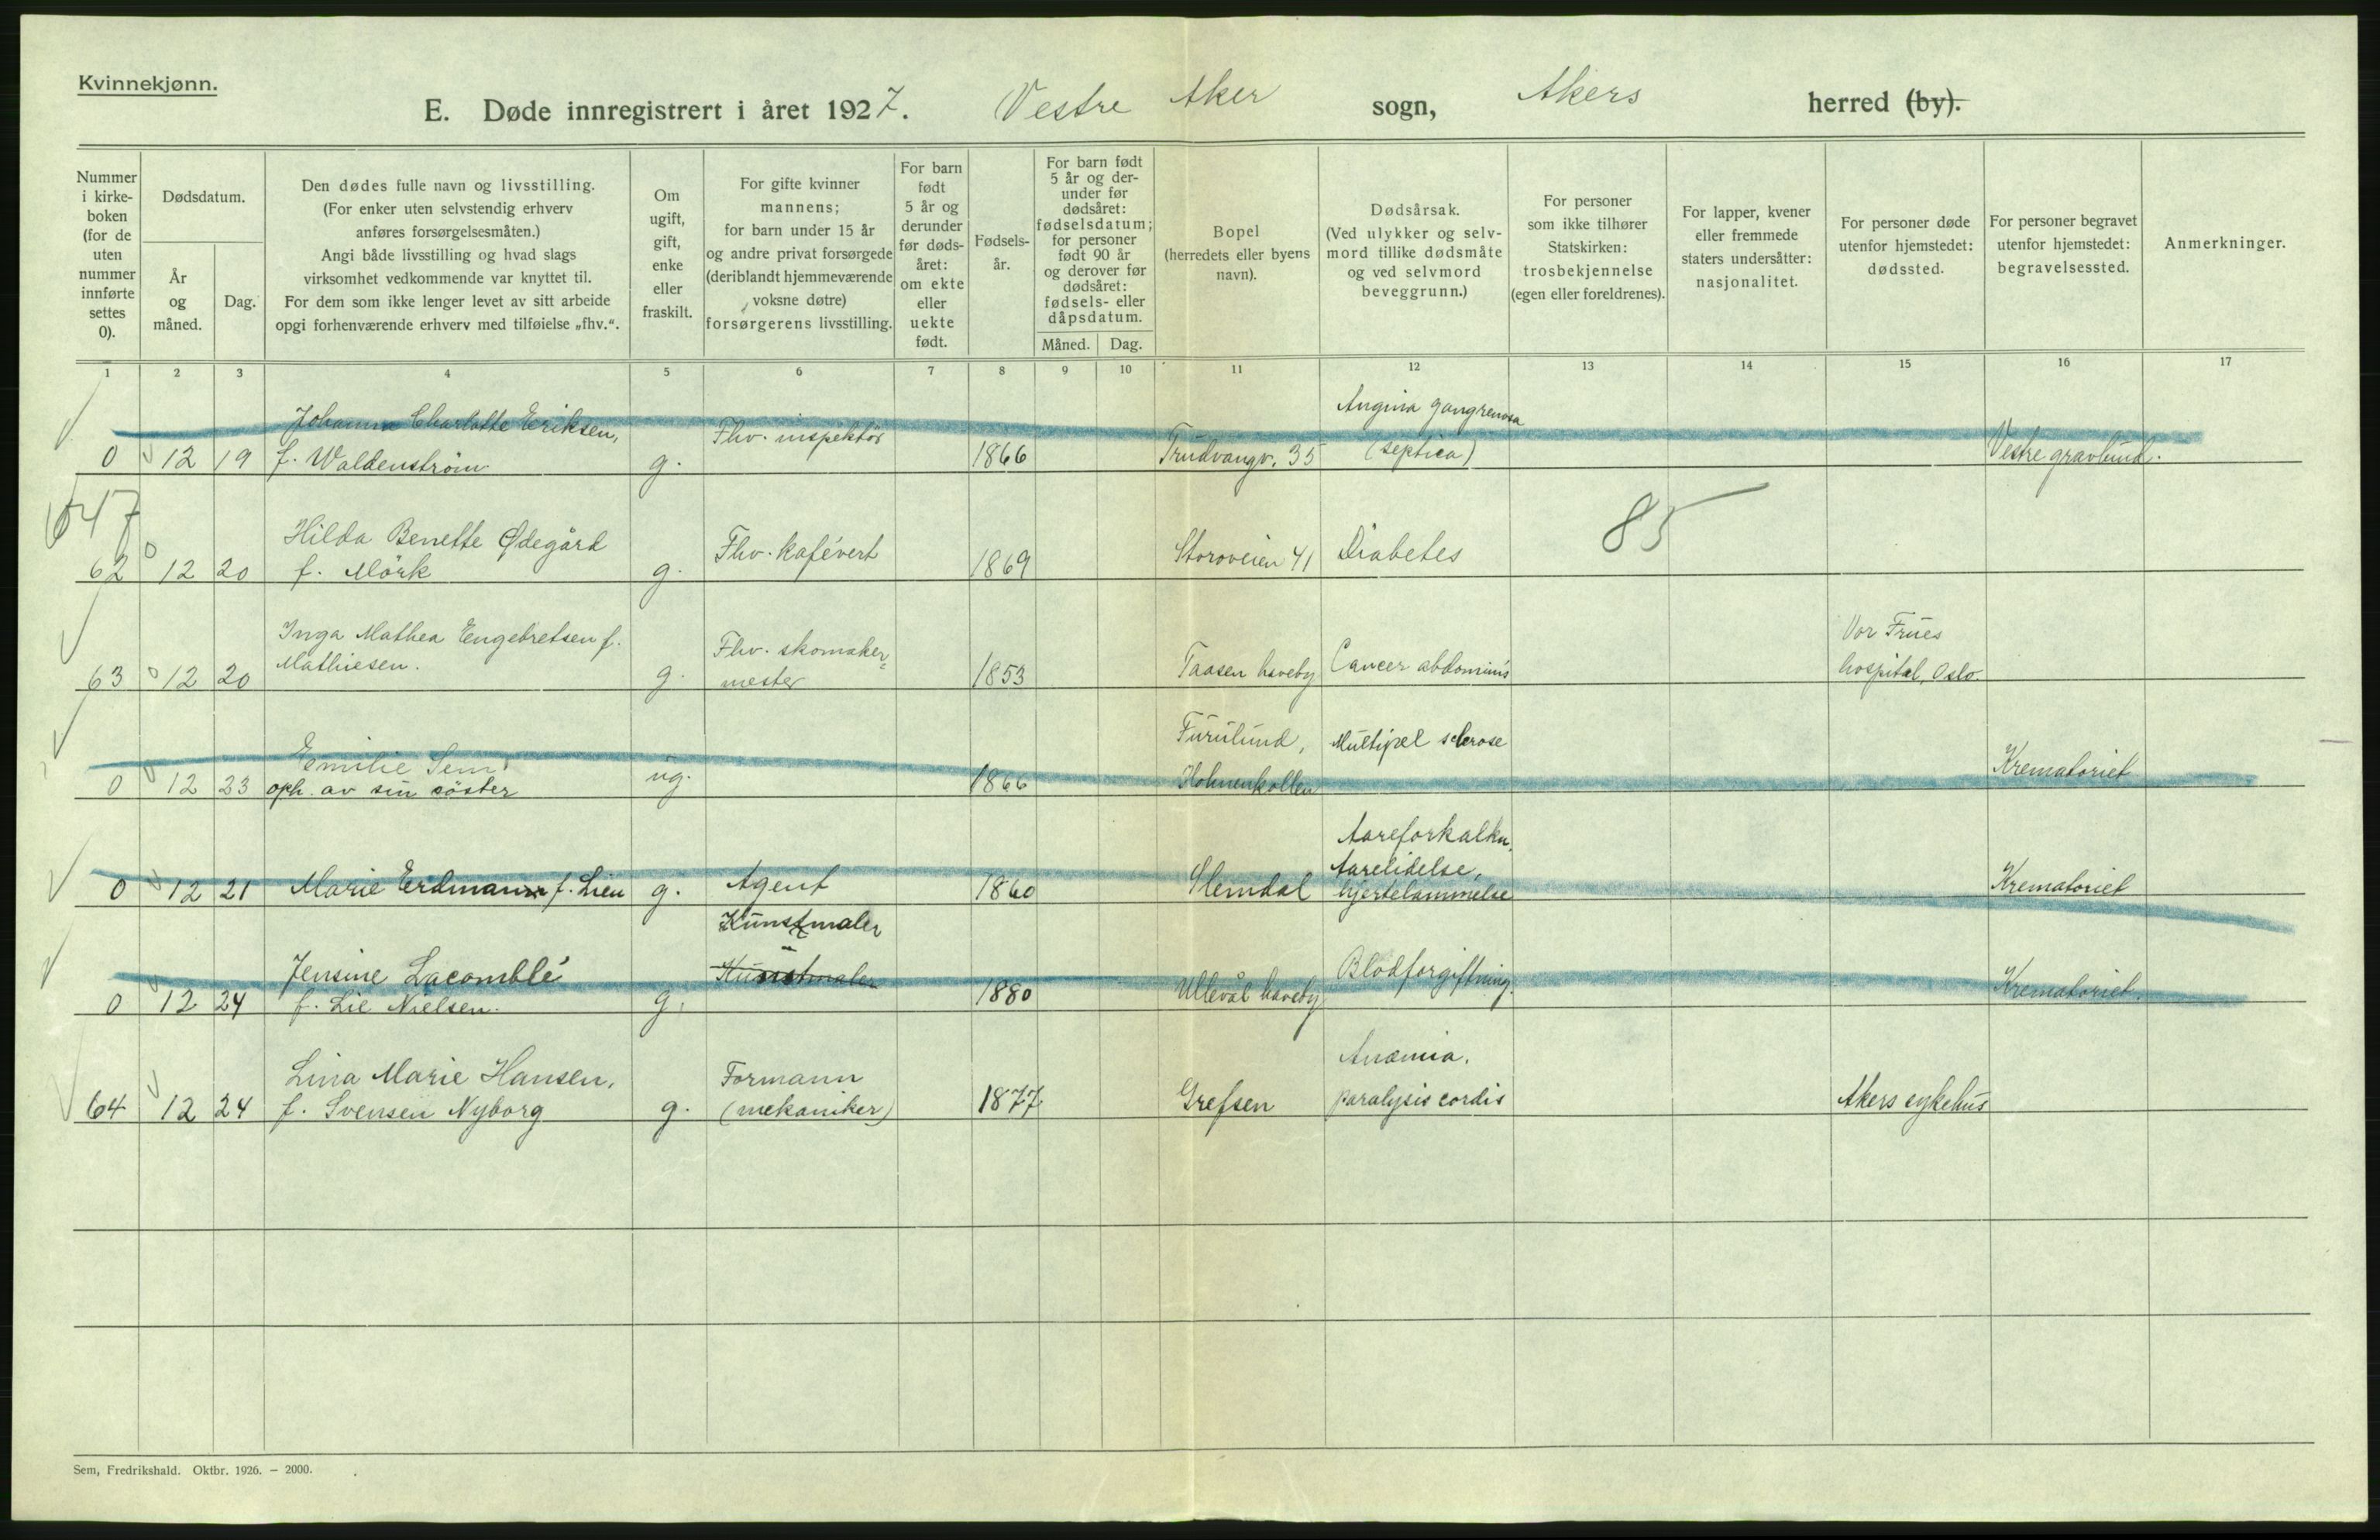 Kvinnekjønn.
E. Døde innregistrert i året 1927. Vestre Aker sogn, Akers herred (by).
Nummer i kirke-boken (for de uten nummer innførte settes 0).
Dødsdatum.
År og måned.
Dag.
Den dødes fulle navn og livsstilling.
(For enker uten selvstendig erhverv
anføres forsørgelsesmåten.)
Angi både livsstilling og hvad slags
virksomhet vedkommende var knyttet til.
For dem som ikke lenger levet av sitt arbeide
opgi forhenværende erhverv med tilføielse „fhv.“.
Om ugift, gift, enke eller fraskilt.
For gifte kvinner
mannens;
for barn under 15 år
og andre privat forsørgede
(deriblandt hjemmeværende
voksne døtre)
forsørgerens livsstilling.
For barn født 5 år og derunder før døds-året: om ekte eller uekte født.
Fødsels-år.
For barn født 5 år og der-under før dødsåret: fødselsdatum; for personer født 90 år og derover før dødsåret: fødsels- eller dåpsdatum.
Måned. Dag.
Bopel
(herredets eller byens
navn).
Dødsårsak.
(Ved ulykker og selv-
mord tillike dødsmåte
og ved selvmord
beveggrunn.)
For personer
som ikke tilhører
Statskirken:
trosbekjennelse
(egen eller foreldrenes).
For lapper, kvener
eller fremmede
staters undersåtter:
nasjonalitet.
For personer døde
utenfor hjemstedet:
dødssted.
For personer begravet
utenfor hjemstedet:
begravelsessted.
Anmerkninger.
1 2 3 4 5 6 7 8 9 10 11 12 13 14 15 16 17
Johanna Charlotte Eriksen, Fhv. inspektör Angina gangrenosa
0 12 19 f. Waldenström g. 1866 Trudvangv. 35 (septica) Vestre gravlund.
647
Hilda Benette Ødegård Fhv. kafévert 85
62 12 20 f. Mörk g. 1869 Storoveien 41 Diabetes
Inga Mathea Engebretsen f. Fhv. skomaker= Vor Frues
63 12 20 Mathiesen. g. mester 1853 Taasen haveby Cancer abdominis hospital, Oslo.
Emilie Sem Furulund, Multipel sclerose
0 12 23 oph. av sin söster ug. 1866 Holmenkollen Krematoriet
Aareforkalkn.
Aarelidelse,
0 12 21 Marie Erdmann f. Lien g. Agent 1860 Slemdal hjertelammelse Krematoriet
Kunstmaler
Jensine Lacomblé Kunstmaler Blodforgiftning.
0 12 24 f. Lie Nielsen. g. 1880 Ullevål haveby Krematoriet.
Lina Marie Hansen, Formann Anæmia.
64 12 24 f. Svensen Nyborg g. (mekaniker) 1877 Grefsen paralysis cordis Akers sykehus
Sem, Fredrikshald. Oktbr. 1926. — 2000.